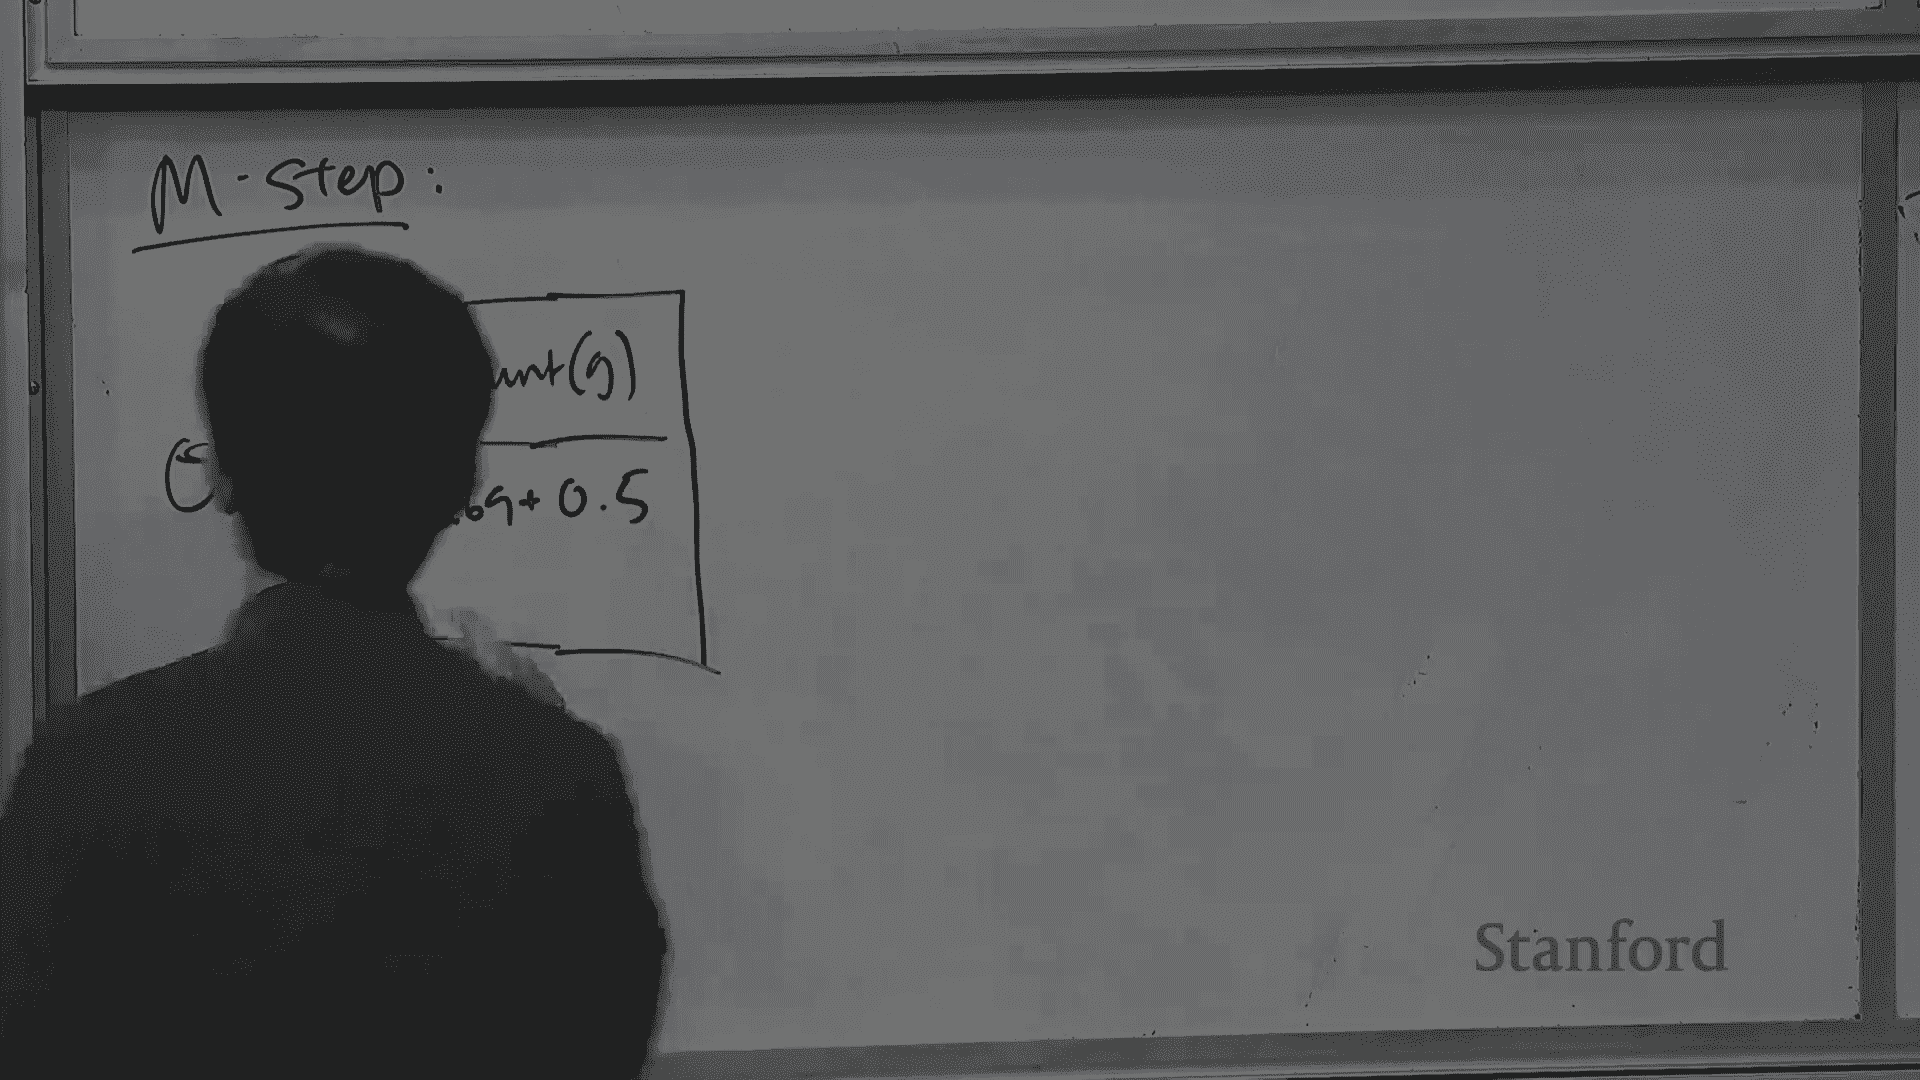 M-step:
unt(g)
.69+ 0.5
Stanford